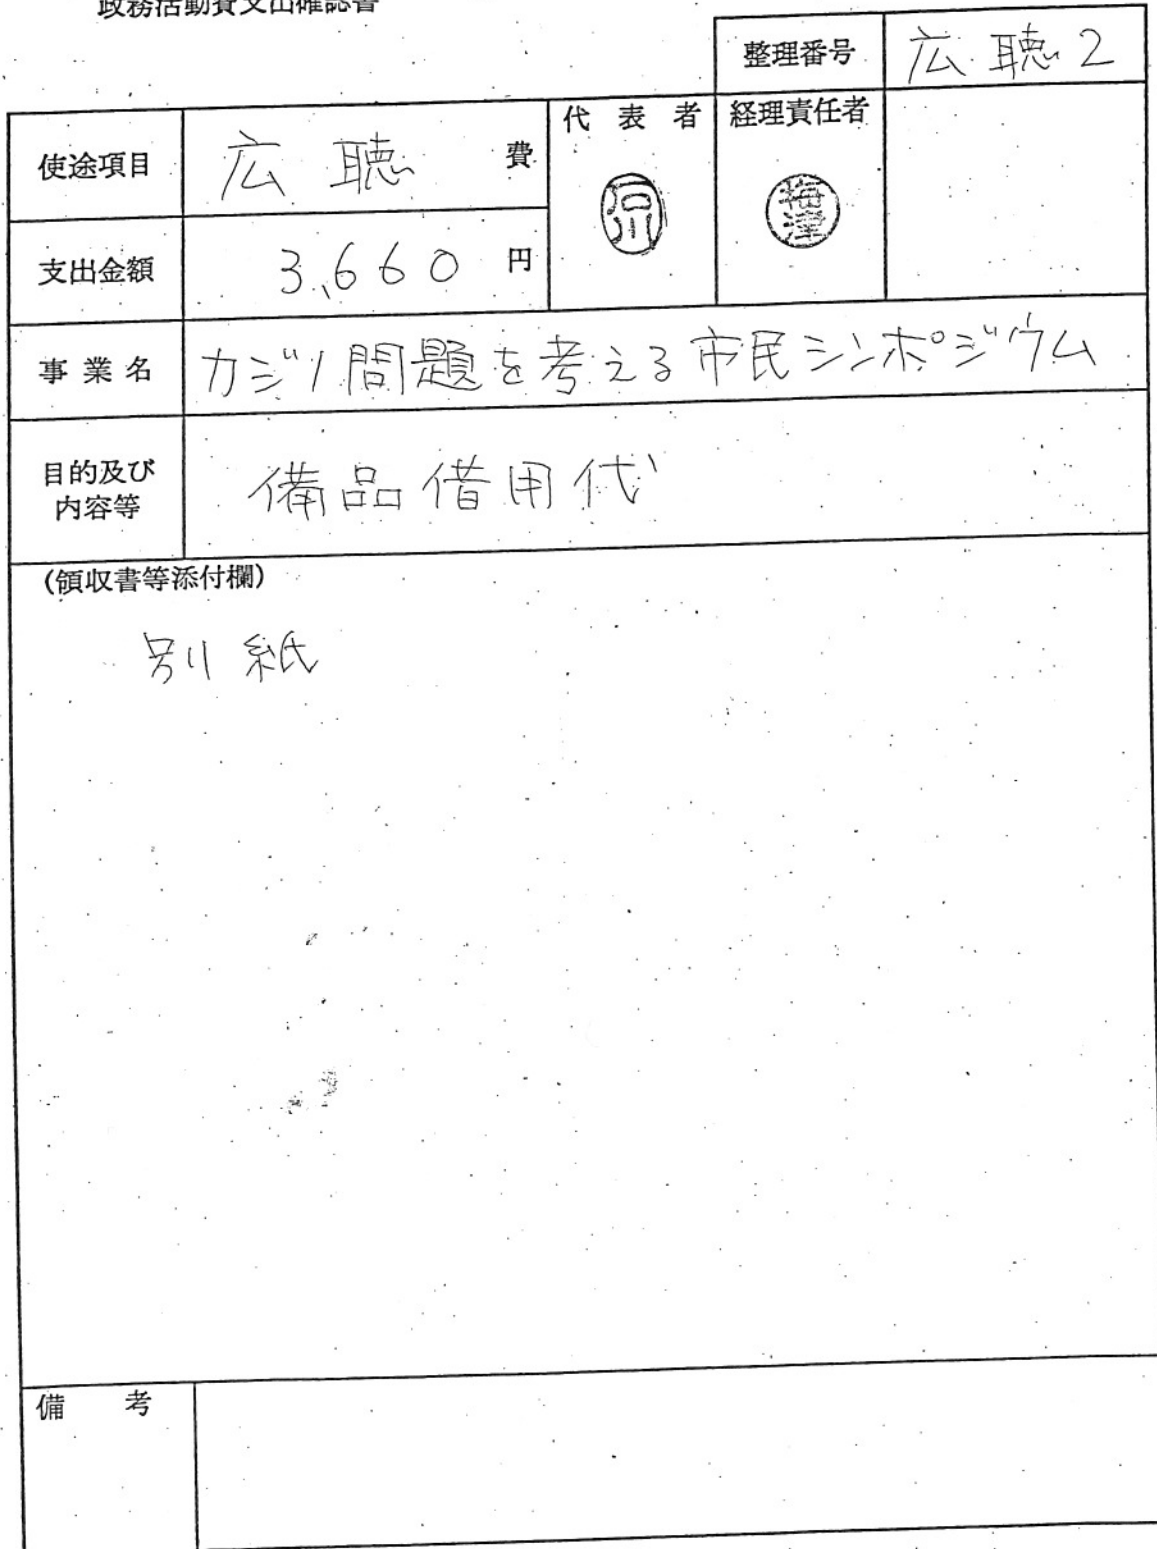 政務活動費支出確認書
整理番号 広聴2
使途項目 広聴 費
代表者 石川
経理責任者 梅津
支出金額 3,660 円
事業名 カジノ問題を考える市民シンポジウム
目的及び
内容等
備品借用代
(領収書等添付欄)
別紙
備考